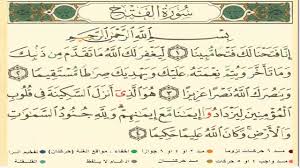 سُورَةُ الفَتْحِ
بِسْمِ اللَّهِ الرَّحْمَٰنِ الرَّحِيمِ
إِنَّا فَتَحْنَا لَكَ فَتْحًا مُّبِينًا ١ لِّيَغْفِرَ لَكَ اللَّهُ مَا تَقَدَّمَ مِن ذَنبِكَ
وَمَا تَأَخَّرَ وَيُتِمَّ نِعْمَتَهُ عَلَيْكَ وَيَهْدِيَكَ صِرَاطًا مُّسْتَقِيمًا ٢
وَيَنصُرَكَ اللَّهُ نَصْرًا عَزِيزًا ٣ هُوَ الَّذِي أَنزَلَ السَّكِينَةَ فِي قُلُوبِ
الْمُؤْمِنِينَ لِيَزْدَادُوا إِيمَانًا مَّعَ إِيمَانِهِمْ وَلِلَّهِ جُنُودُ السَّمَاوَاتِ
وَالْأَرْضِ وَكَانَ اللَّهُ عَلِيمًا حَكِيمًا ٤
مد ٦ حركات لزوما مد ٢ او ٤ او ٦ جوازا
مد حركتان